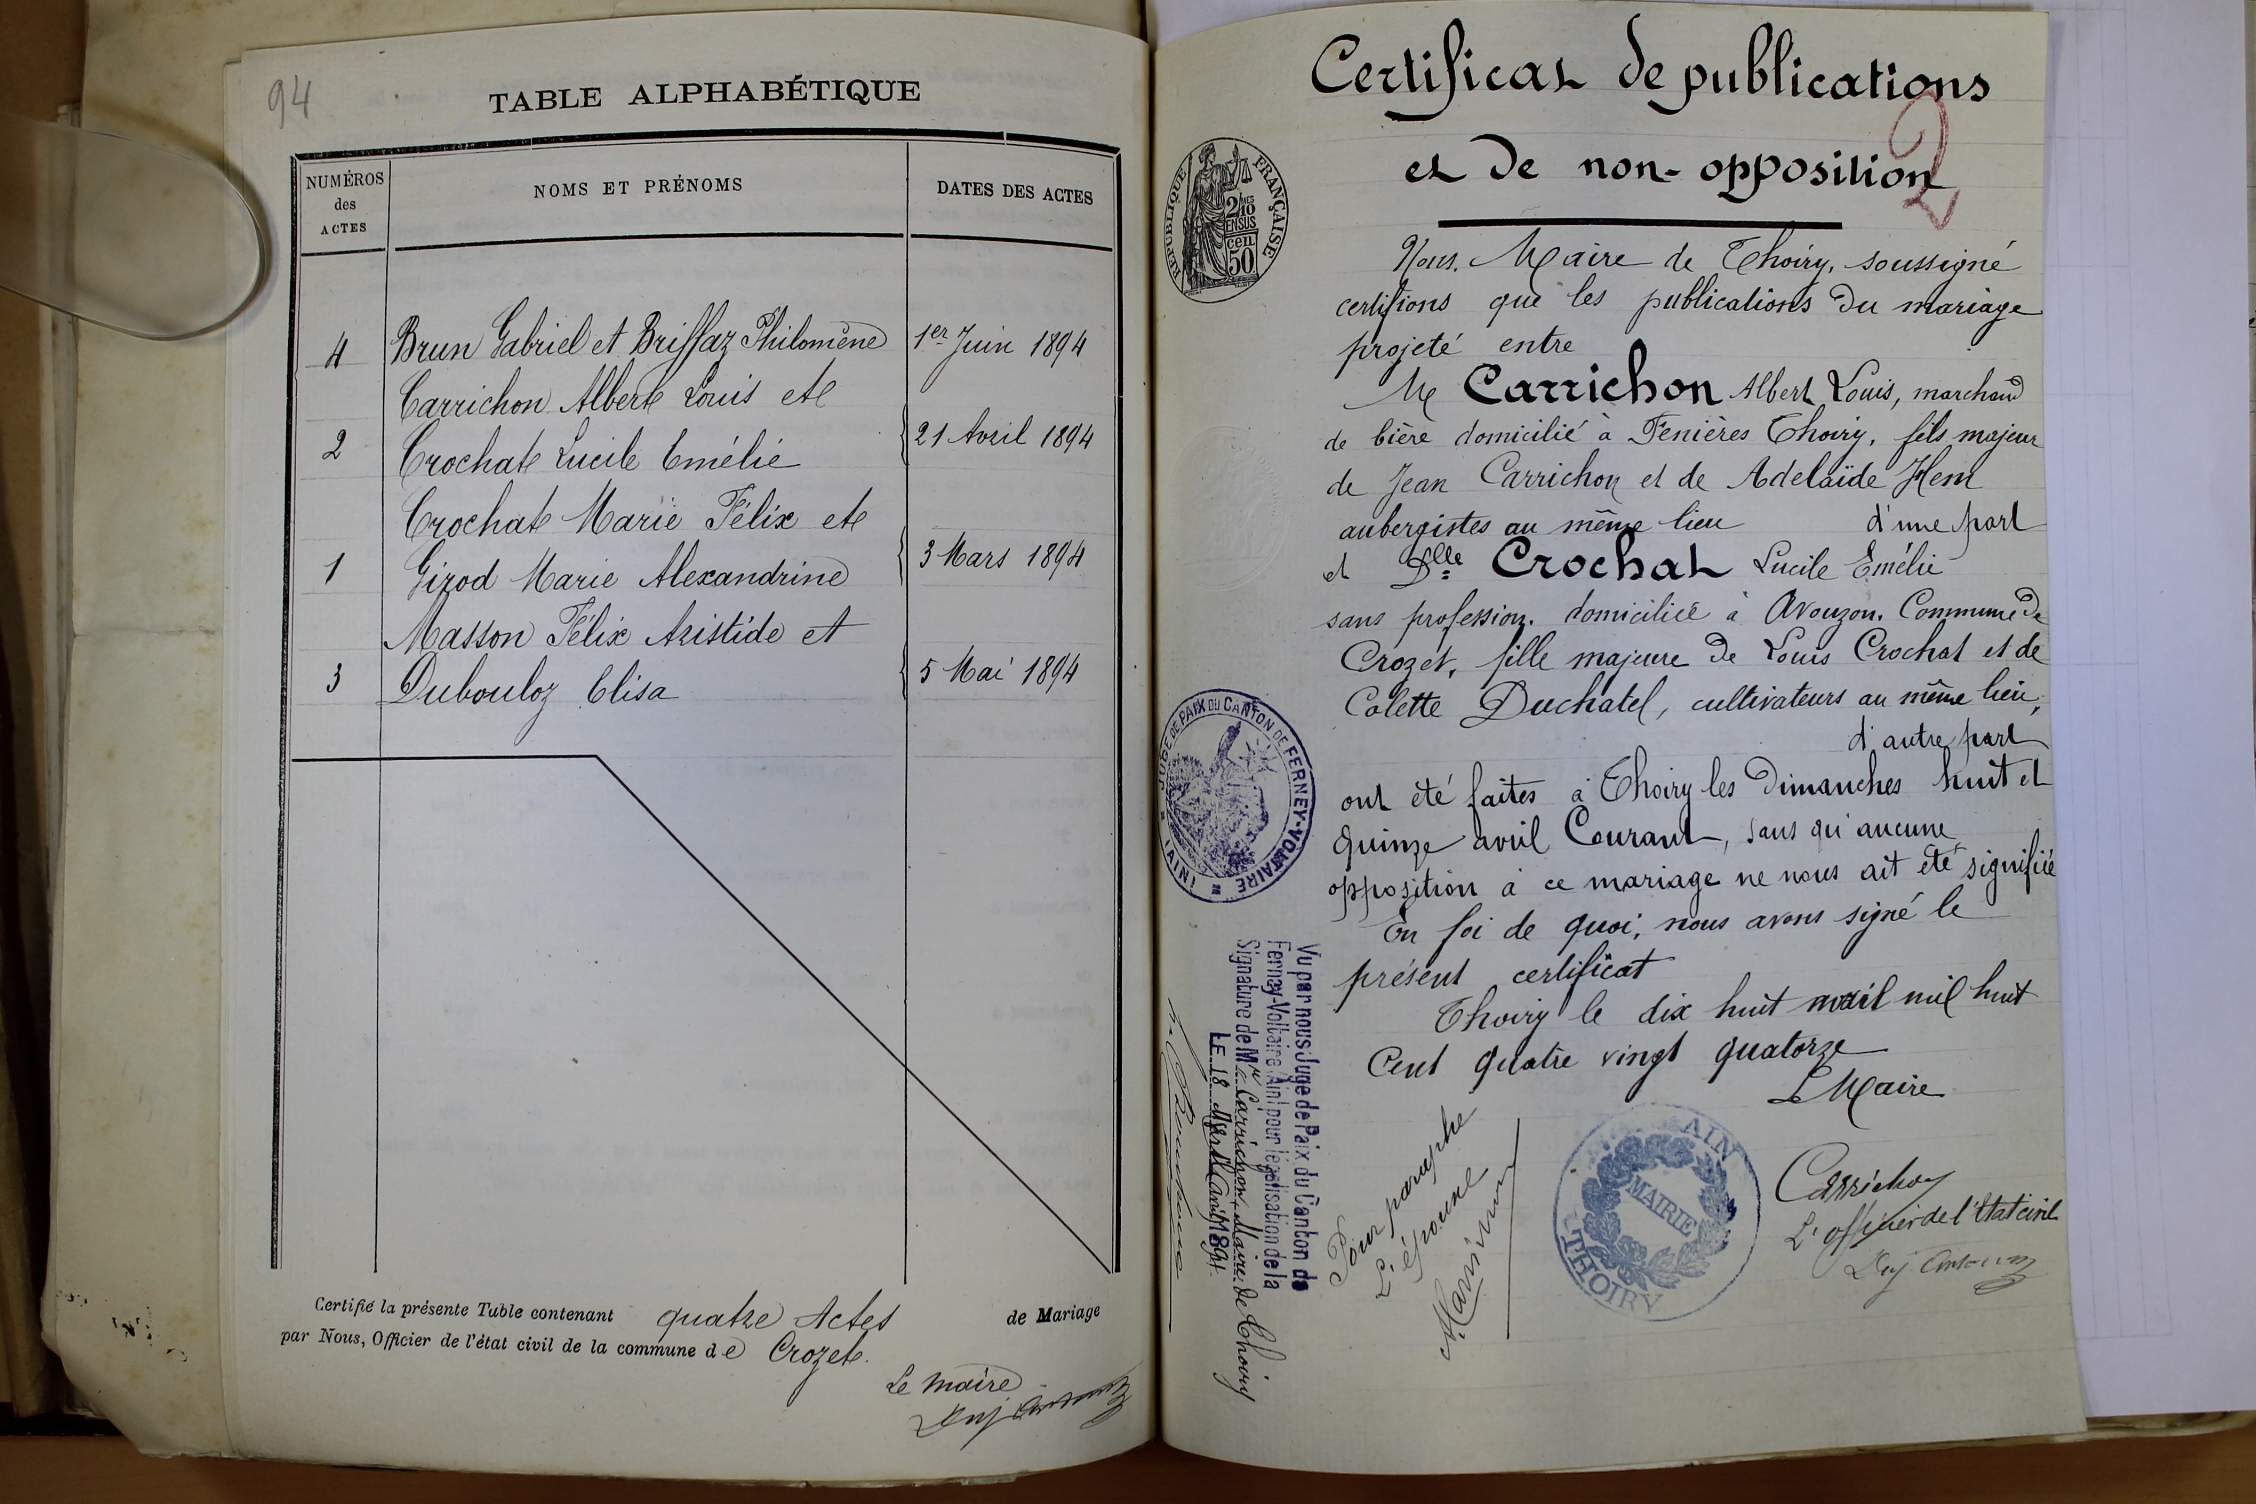 94
TABLE ALPHABÉTIQUE
NUMÉROS
des
ACTES
NOMS ET PRÉNOMS
DATES DES ACTES
4 Brun Gabriel et Briffaz Philomène 1er Juin 1894
Carrichon Albert Louis et
2 Crochat Lucile Emélie 21 Avril 1894
Crochat Marie Félix et
1 Girod Marie Alexandrine 3 Mars 1894
Masson Félix Aristide et
3 Dubouloz Elisa 5 Mai 1894
Certifié la présente Table contenant quatre Actes de Mariage
par Nous, Officier de l'état civil de la commune de Crozet.
Le maire
Certificat de publications
2
et de non-opposition
RÉPUBLIQUE FRANÇAISE
2/10
EN SUS
50
cen
Nous. Maire de Thoiry, soussigné
certifions que les publications du mariage
projeté entre
Mr Carrichon Albert Louis, marchand
de bière domicilié à Fenières Thoiry, fils majeur
de Jean Carrichon et de Adelaïde Hem
aubergistes au même lieu d'une part
et Dlle Crochat Lucile Emélie
sans profession. domiciliée à Avouzon. Commune de
Crozet, fille majeure de Louis Crochat et de
Colette Duchatel, cultivateurs au même lieu,
d'autre part
ont été faites à Thoiry les Dimanches huit et
quinze avril Courant, sans qu'aucune
opposition à ce mariage ne nous ait été signifiée
En foi de quoi, nous avons signé le
présent certificat
Thoiry le dix huit avril mil huit
Cent quatre vingt quatorze
Le Maire
JUGE DE PAIX DU CANTON DE FERNEY-VOLTAIRE
(AIN)
Vu par nous Juge de Paix du Canton de
Ferney-Voltaire (Ain) pour légalisation de la
Signature de Mr Carrichon, Maire de Thoiry
LE 18 avril 1894.
Pour paraphe
L'épouse
MAIRIE
THOIRY
AIN
Carrichon
L'officier de l'Etat civil